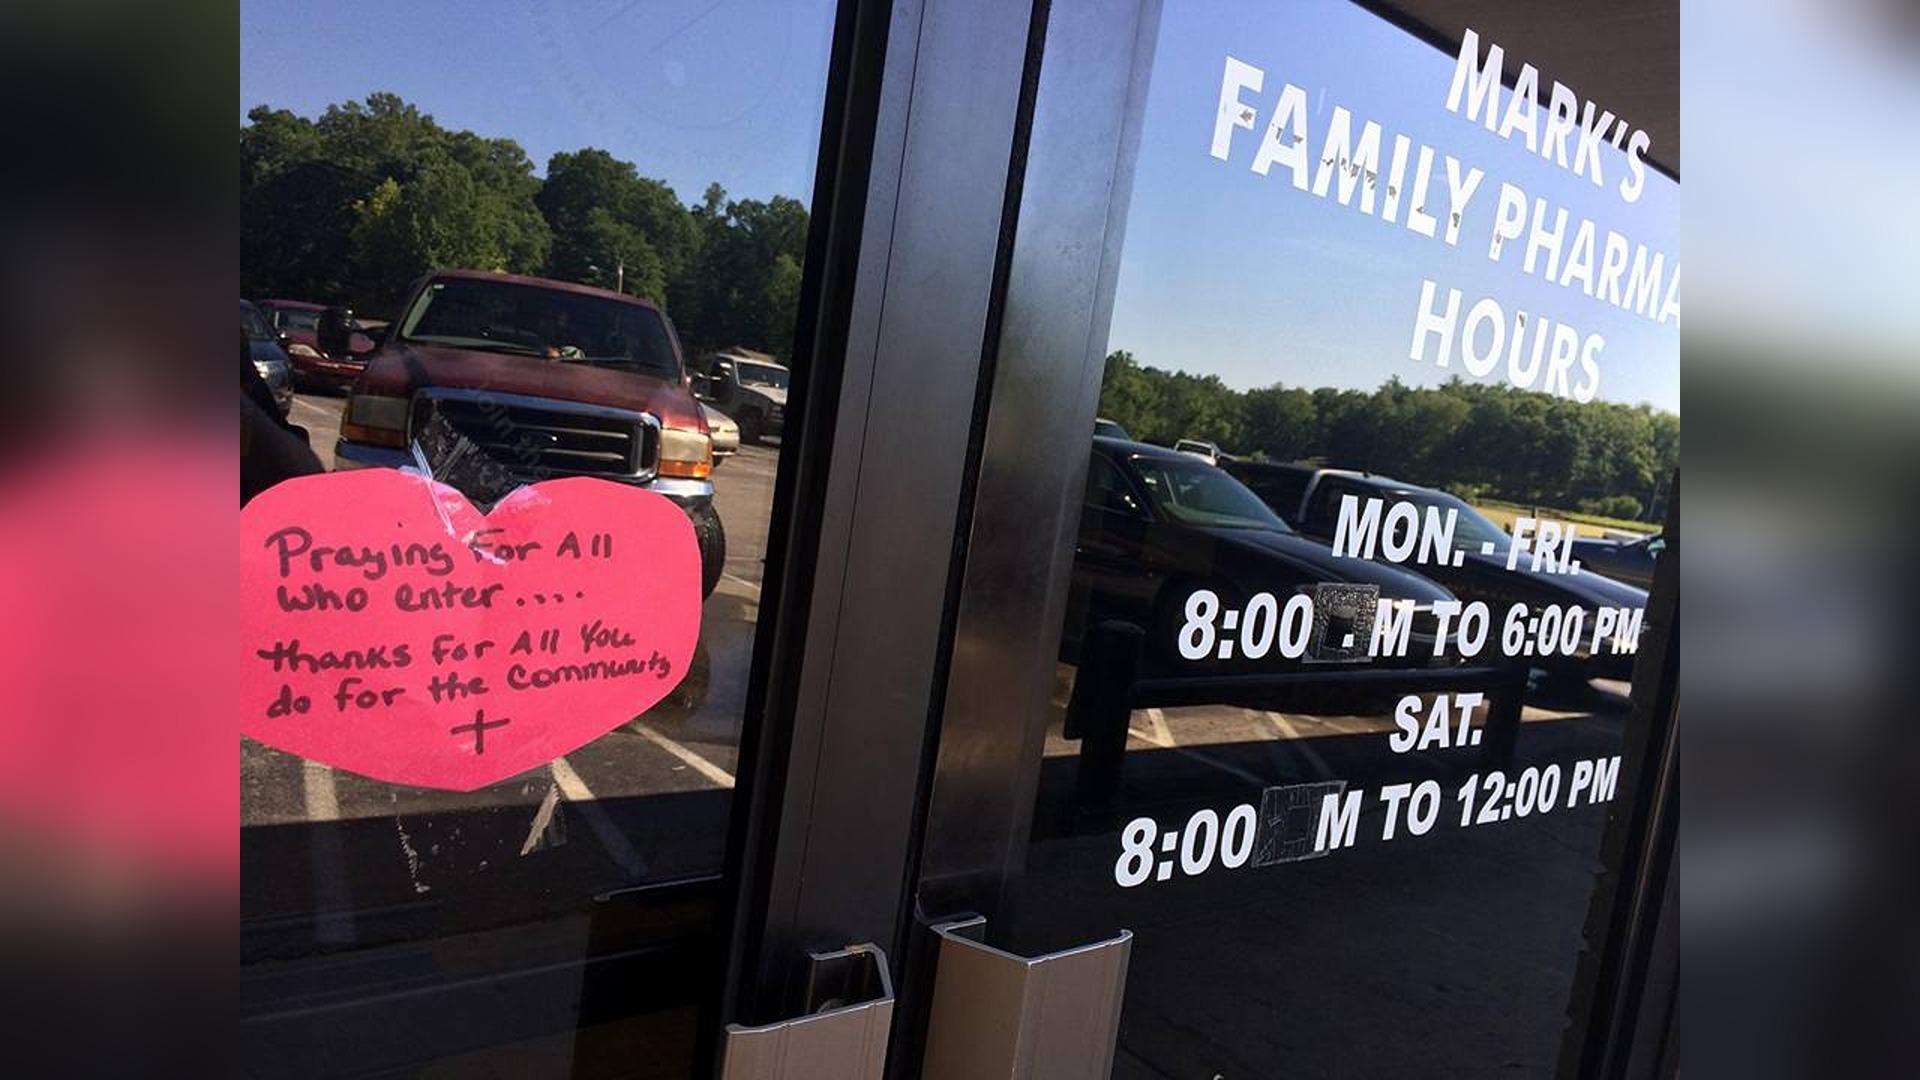 Praying For All
who enter ....
thanks For All You
do for the Community
MARK'S
FAMILY PHARMA
HOURS
MON. - FRI.
8:00 M TO 6:00 PM
SAT.
8:00 M TO 12:00 PM